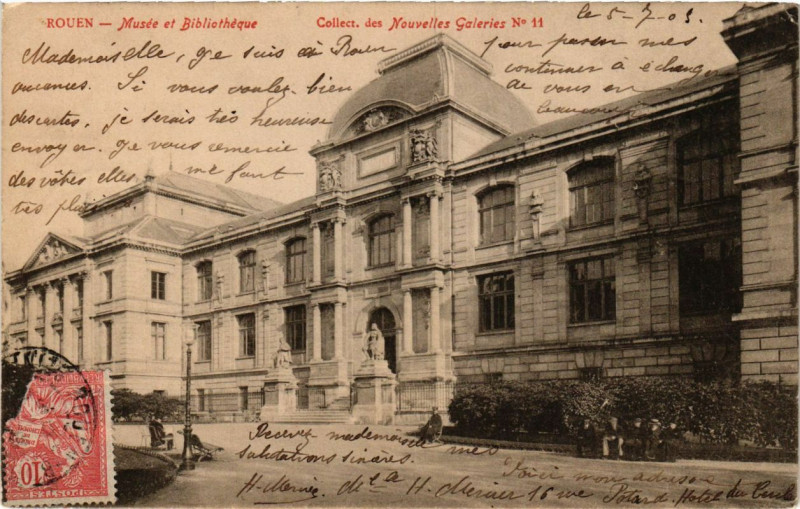 ROUEN — Musée et Bibliothèque
Collect. des Nouvelles Galeries Nº 11
le 5-7-03.
Mademoiselle, je suis à Rouen pour passer mes
vacances. Si vous voulez bien continuer à échanger
des cartes, je serais très heureuse de vous en
envoyer. Je vous remercie beaucoup
des vôtres elles me font
très pl
Recevez mademoiselle mes
salutations sincères.
Voici mon adresse
H. Mercier. Mlle H. Mercier 16 rue Potard Hotel du
10
POSTES